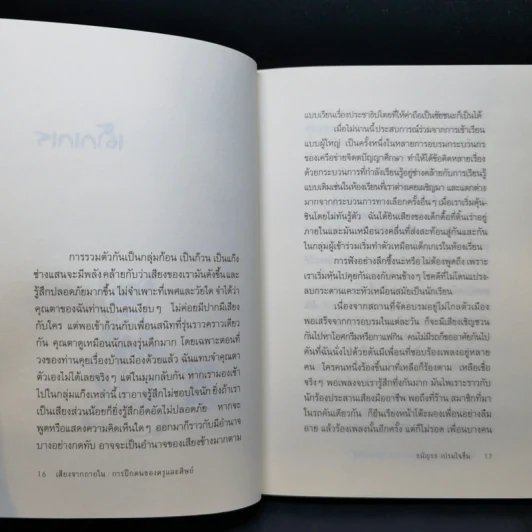 เด็กเกเร
การรวมตัวกันเป็นกลุ่มก้อน เป็นก๊วน เป็นแก๊ง
ช่างแสนจะมีพลัง คล้ายกับว่าเสียงของเรามันดังขึ้นและ
รู้สึกปลอดภัยมากขึ้น ไม่จำเพาะที่เพศและวัยใด จำได้ว่า
คุณตาของฉันท่านเป็นคนเงียบๆ ไม่ค่อยมีปากมีเสียง
กับใคร แต่พอเข้าก๊วนกับเพื่อนสนิทที่รุ่นราวคราวเดียว
กัน คุณตาดูเหมือนนักเลงรุ่นดึกมาก โดยเฉพาะตอนที่
วงของท่านคุยเรื่องบ้านเมืองด้วยแล้ว ฉันแทบจำคุณตา
ตัวเองไม่ได้เลยจริงๆ แต่ในมุมกลับกัน หากเรามองเข้า
ไปในกลุ่มแก๊งเหล่านี้ เราอาจรู้สึกไม่ชอบใจนัก ยิ่งถ้าเรา
เป็นเสียงส่วนน้อยก็ยิ่งรู้สึกอึดอัดไม่ปลอดภัย หากจะ
พูดหรือแสดงความคิดเห็นใดๆ ออกมาก็ราวกับมีอำนาจ
บางอย่างกดทับ อาจจะเป็นอำนาจของเสียงข้างมากตาม
16 เสียงจากภายใน : การฝึกตนของครูและศิษย์
แบบเรียนเรื่องประชาธิปไตยที่ให้ค่าถือเป็นชัยชนะก็เป็นได้
เมื่อไม่นานนี้ประสบการณ์ร่วมจากการเข้าเรียน
แบบผู้ใหญ่ เป็นครั้งหนึ่งในหลายการอบรมกระบวนกร
ของเครือข่ายจิตตปัญญาศึกษา ทำให้ได้ข้อคิดหลายเรื่อง
ด้วยกระบวนการที่กำลังเรียนรู้อยู่ช่างคล้ายกับการเรียนรู้
แบบเดิมเช่นในห้องเรียนที่เราต่างเคยเผชิญมา และแตกต่าง
มากจากกระบวนการทางเลือกครั้งอื่นๆ เมื่อเราเริ่มคุ้น
ชินโดยไม่ทันรู้ตัว ฉันได้ยินเสียงของเด็กดื้อที่ดิ้นเร่าอยู่
ภายในและมันเหมือนวงคลื่นที่ส่งสะท้อนสู่กันและกัน
ในกลุ่มผู้เข้าร่วมเริ่มทำตัวเหมือนเด็กเกเรในห้องเรียน
การฟังอย่างลึกซึ้งนะหรือ ไม่ต้องพูดถึง เพราะ
เราเริ่มหันไปคุยกันเองกับคนข้างๆ โชคดีที่ไม่โดนแปรง-
ลบกระดานเคาะหัวเหมือนสมัยเป็นนักเรียน
เนื่องจากสถานที่จัดอบรมอยู่ไม่ไกลตัวเมือง
พอเสร็จจากการอบรมในแต่ละวัน ก็จะมีเสียงเชิญชวน
กันไปทาโอศกรีมหรือกาแฟกิน คนไม่มีรถก็ขออาศัยกันไป
คันที่ฉันนั่งไปด้วยดันมีเพื่อนที่ชอบร้องเพลงอยู่หลาย
คน ใครคนหนึ่งร้องขึ้นมาที่เหลือก็ร้องตาม เหลือเชื่อ
จริงๆ พอเพลงจบเรารู้สึกทึ่งกันมาก มันไพเราะราวกับ
นักร้องประสานเสียงมืออาชีพ พอถึงที่ร้าน สมาชิกที่มา
ในรถคันเดียวกัน ก็ยืนเรียงหน้าโต๊ะมองเพื่อนอย่างลืม
อาย แล้วร้องเพลงนั้นอีกครั้ง แต่ก็ไม่รอด เพื่อนบางคน
ธนัญธร เปรมใจชื่น 17